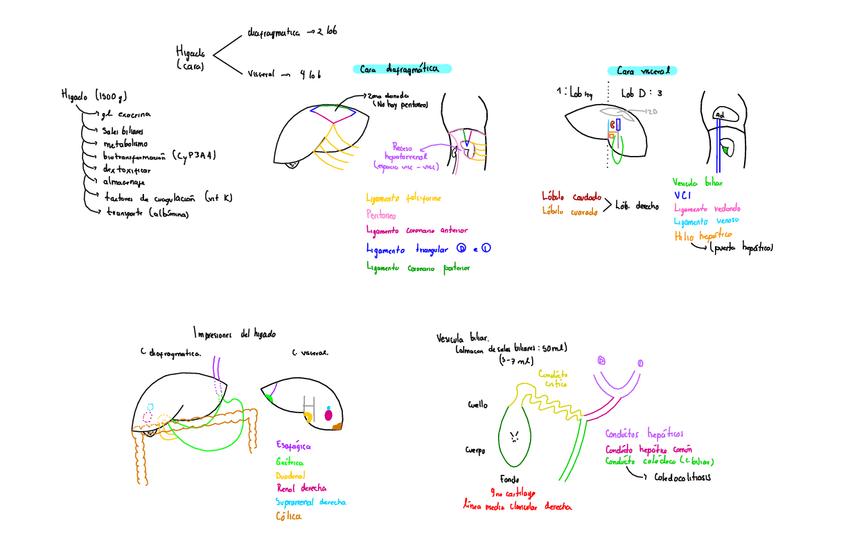 Hígado
(cara)
diafragmatica → 2 lob
visceral → 4 lob
Hígado (1500 g)
gl exocrina
Sales biliares
metabolismo
biotransformación (CyP3A4)
dextoxificar
almacenaje
factores de coagulación (vit K)
transporte (albúmina)
Cara diafragmática
Zona desnuda
(No hay peritoneo)
Receso
hepatorrenal
(espacio visc - visc)
Ligamento falciforme
Peritoneo
Ligamento coronario anterior
Ligamento triangular D e I
Ligamento coronario posterior
Cara visceral
1: Lob Izq
Lob D: 3
Lóbulo caudado
Lóbulo cuadrado
Lób. derecho
Vesicula biliar
VCI
Ligamento redondo
Ligamento venoso
Hilio hepático
(puerta hepática)
Impresiones del hígado
C diafragmatica.
C visceral.
Esofágica
Gástrica
Duodenal
Renal derecha
Suprarrenal derecha
Cólica
Vesicula biliar.
(almacen de sales biliares: 50 ml)
(5-7 ml)
Conducto
cístico
Cuello
Cuerpo
Fondo
9no cartílago
línea media clavicular derecha
Conductos hepáticos
Conducto hepático común
Conducto colédoco (c. biliar)
Coledocolitiasis